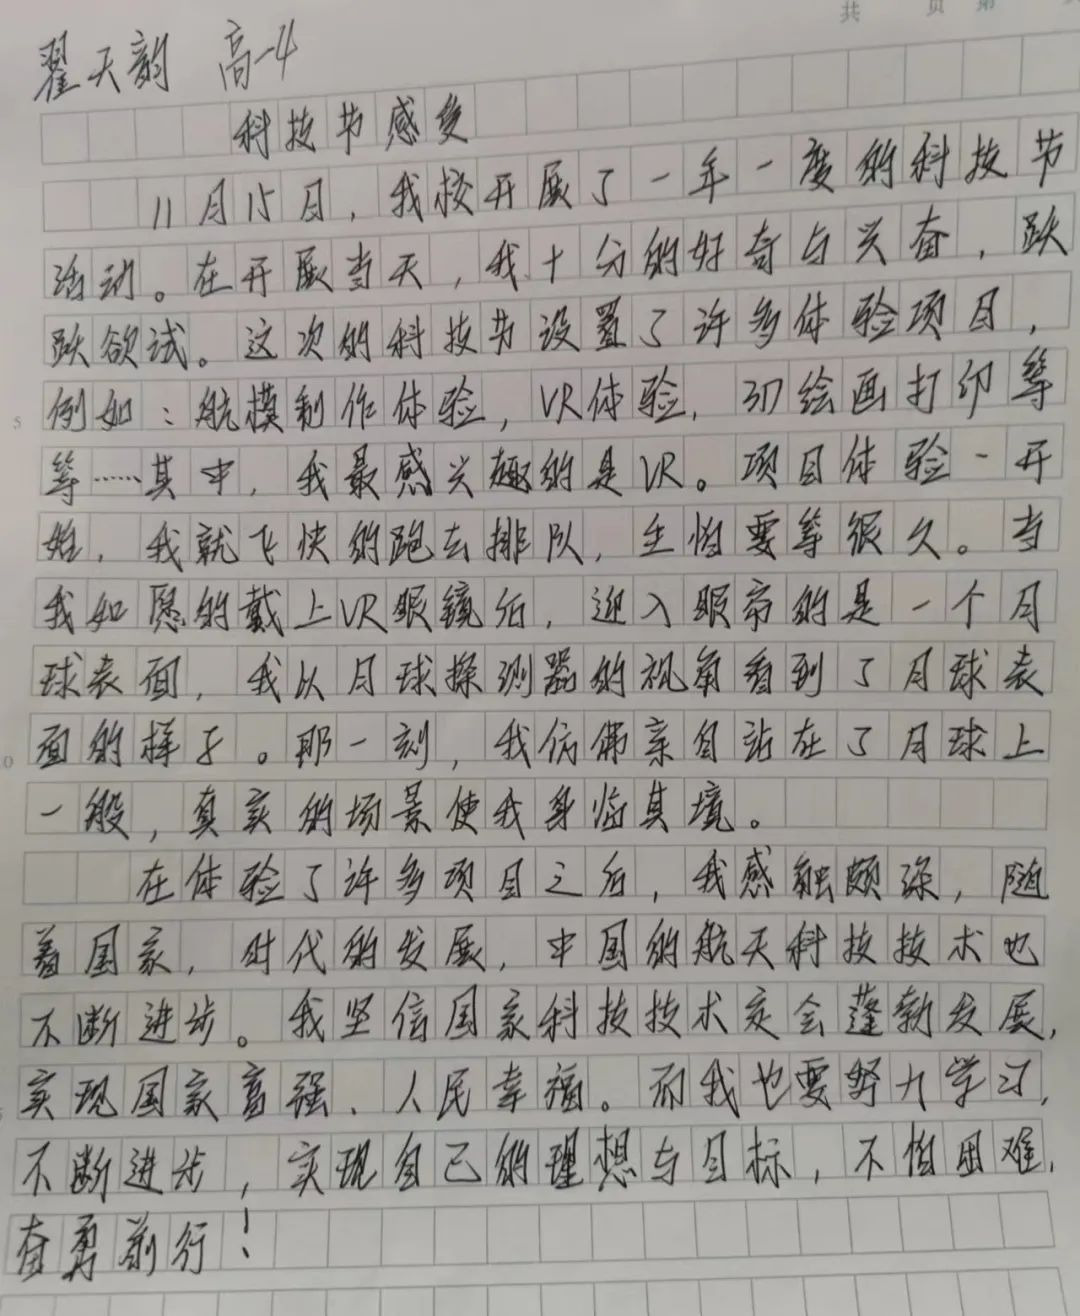 共 页 第
翟天韵 高一4
科技节感受
11月15日，我校开展了一年一度的科技节
活动。在开展当天，我十分的好奇与兴奋，跃
跃欲试。这次的科技节设置了许多体验项目，
例如：航模制作体验，VR体验，3D绘画打印等
等……其中，我最感兴趣的是VR。项目体验一开
始，我就飞快的跑去排队，生怕要等很久。当
我如愿的戴上VR眼镜后，迎入眼帘的是一个月
球表面，我以月球探测器的视角看到了月球表
面的样子。那一刻，我仿佛亲自站在了月球上
一般，真实的场景使我身临其境。
在体验了许多项目之后，我感触颇深，随
着国家，时代的发展，中国的航天科技技术也
不断进步。我坚信国家科技技术定会蓬勃发展，
实现国家富强、人民幸福。而我也要努力学习，
不断进步，实现自己的理想与目标，不怕困难，
奋勇前行！